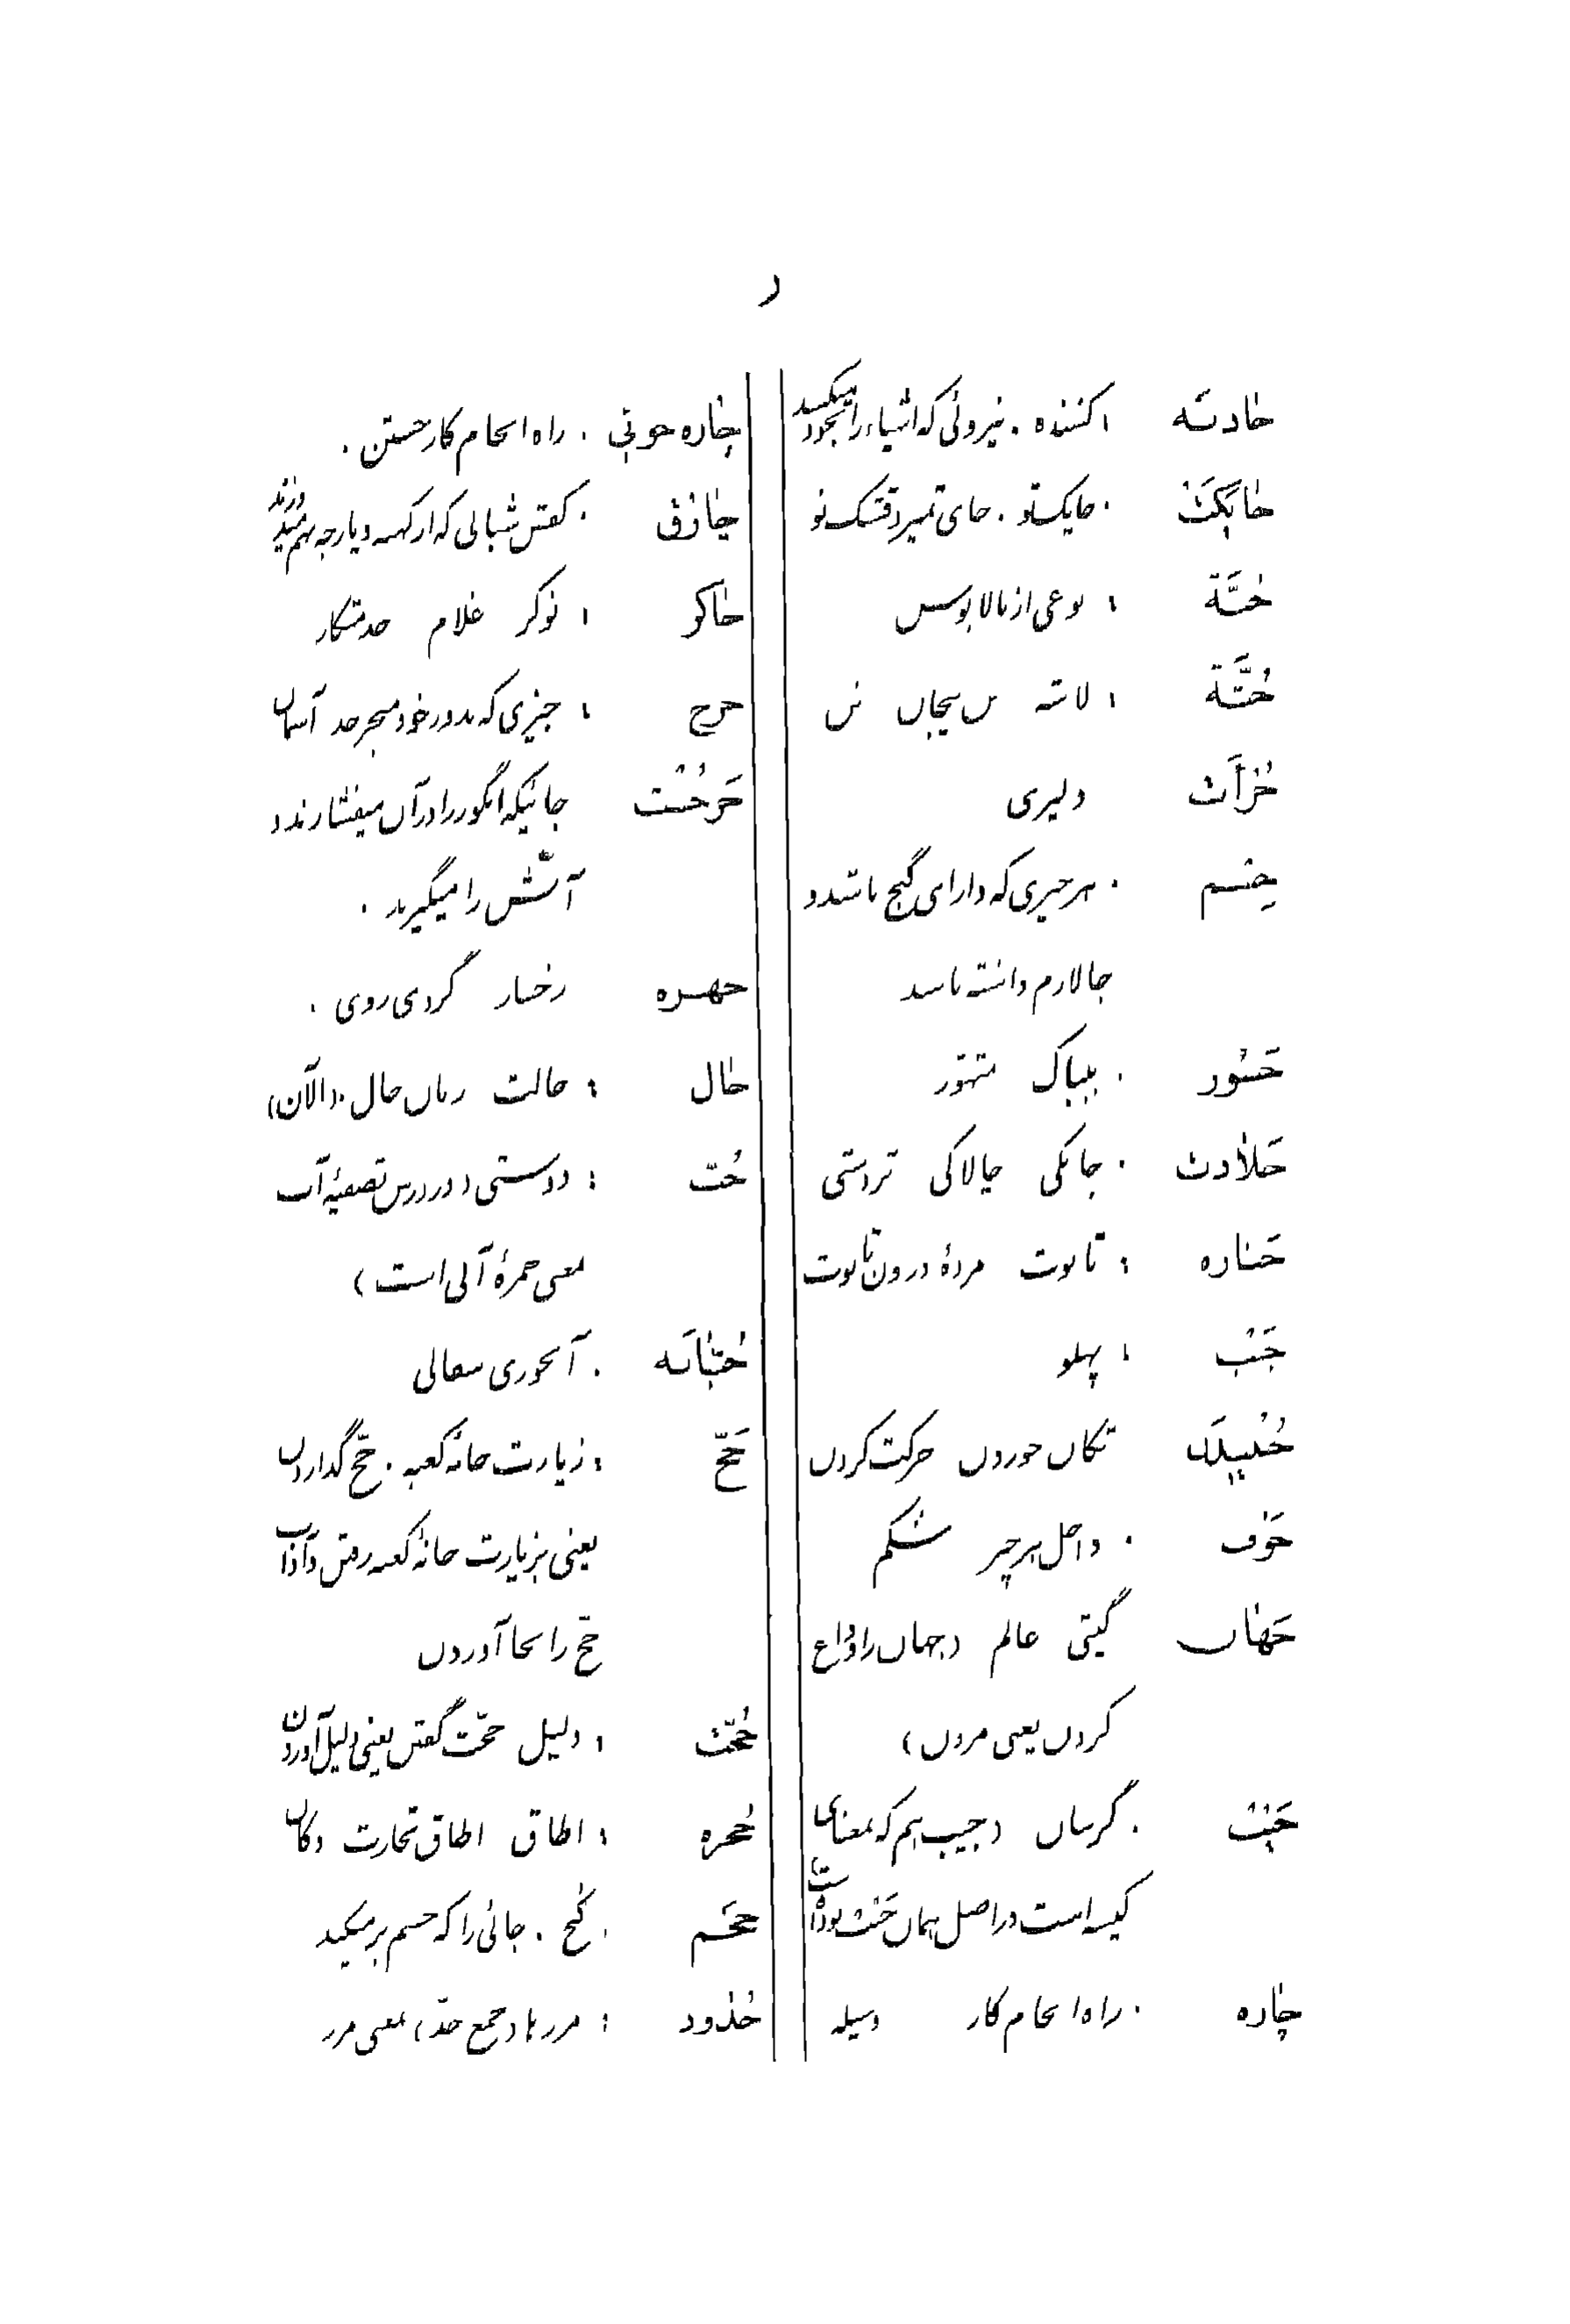 ر
جاذبه کشنده . نیروئی که اشیاء را بخود میکشد
چابک . چابک تو . جای
جبّه : نوعی از بالاپوش
جثّه : لاشه تن بیجان تن
جرأت دلیری
جسم . هر چیزی که دارای گنج باشد و
جا لازم داشته باشد
جسور . بیباک متهوّر
جلادت . چابکی چالاکی تردستی
جنازه : تابوت مردهٔ درون تابوت
جنب : پهلو
جنبیدن تکان خوردن حرکت کردن
جوف . داخل هر چیز شکم
جهان گیتی عالم (جهان را وداع
کردن یعنی مردن)
جیب . گریبان (جیب هم که بمعنای
کیسه است در اصل همان جیب بوده است
چاره . راه انجام کار وسیله
چاره جوئی . راه انجام کار جستن .
چارق . کفش شبانی که از کهنه و پارچه بهم میدوزند
چاکر : نوکر غلام خدمتکار
چرخ : چیزی که بدور خود میچرخد آسمان
چرخشت جائیکه انگور را در آن میفشارند و
آبش را میگیرند .
چهره رخسار گردی روی .
حال : حالت زمان حال . (الآن)
حبّ : دوستی (و در درس تصفیهٔ آب
بمعنی خمرهٔ آبی است)
حبّابه . آبخوری سفالی
حجّ : زیارت خانهٔ کعبه . حجّ گذاردن
یعنی بزیارت خانهٔ کعبه رفتن و آداب
حجّ را بجا آوردن
حجّت : دلیل حجّت گفتن یعنی دلیل آوردن
حجره : اطاق اطاق تجارت دکان
حجم . گنج . جائی را که جسم پر میکند
حدود : مرزها (جمع حدّ) بمعنی مرز